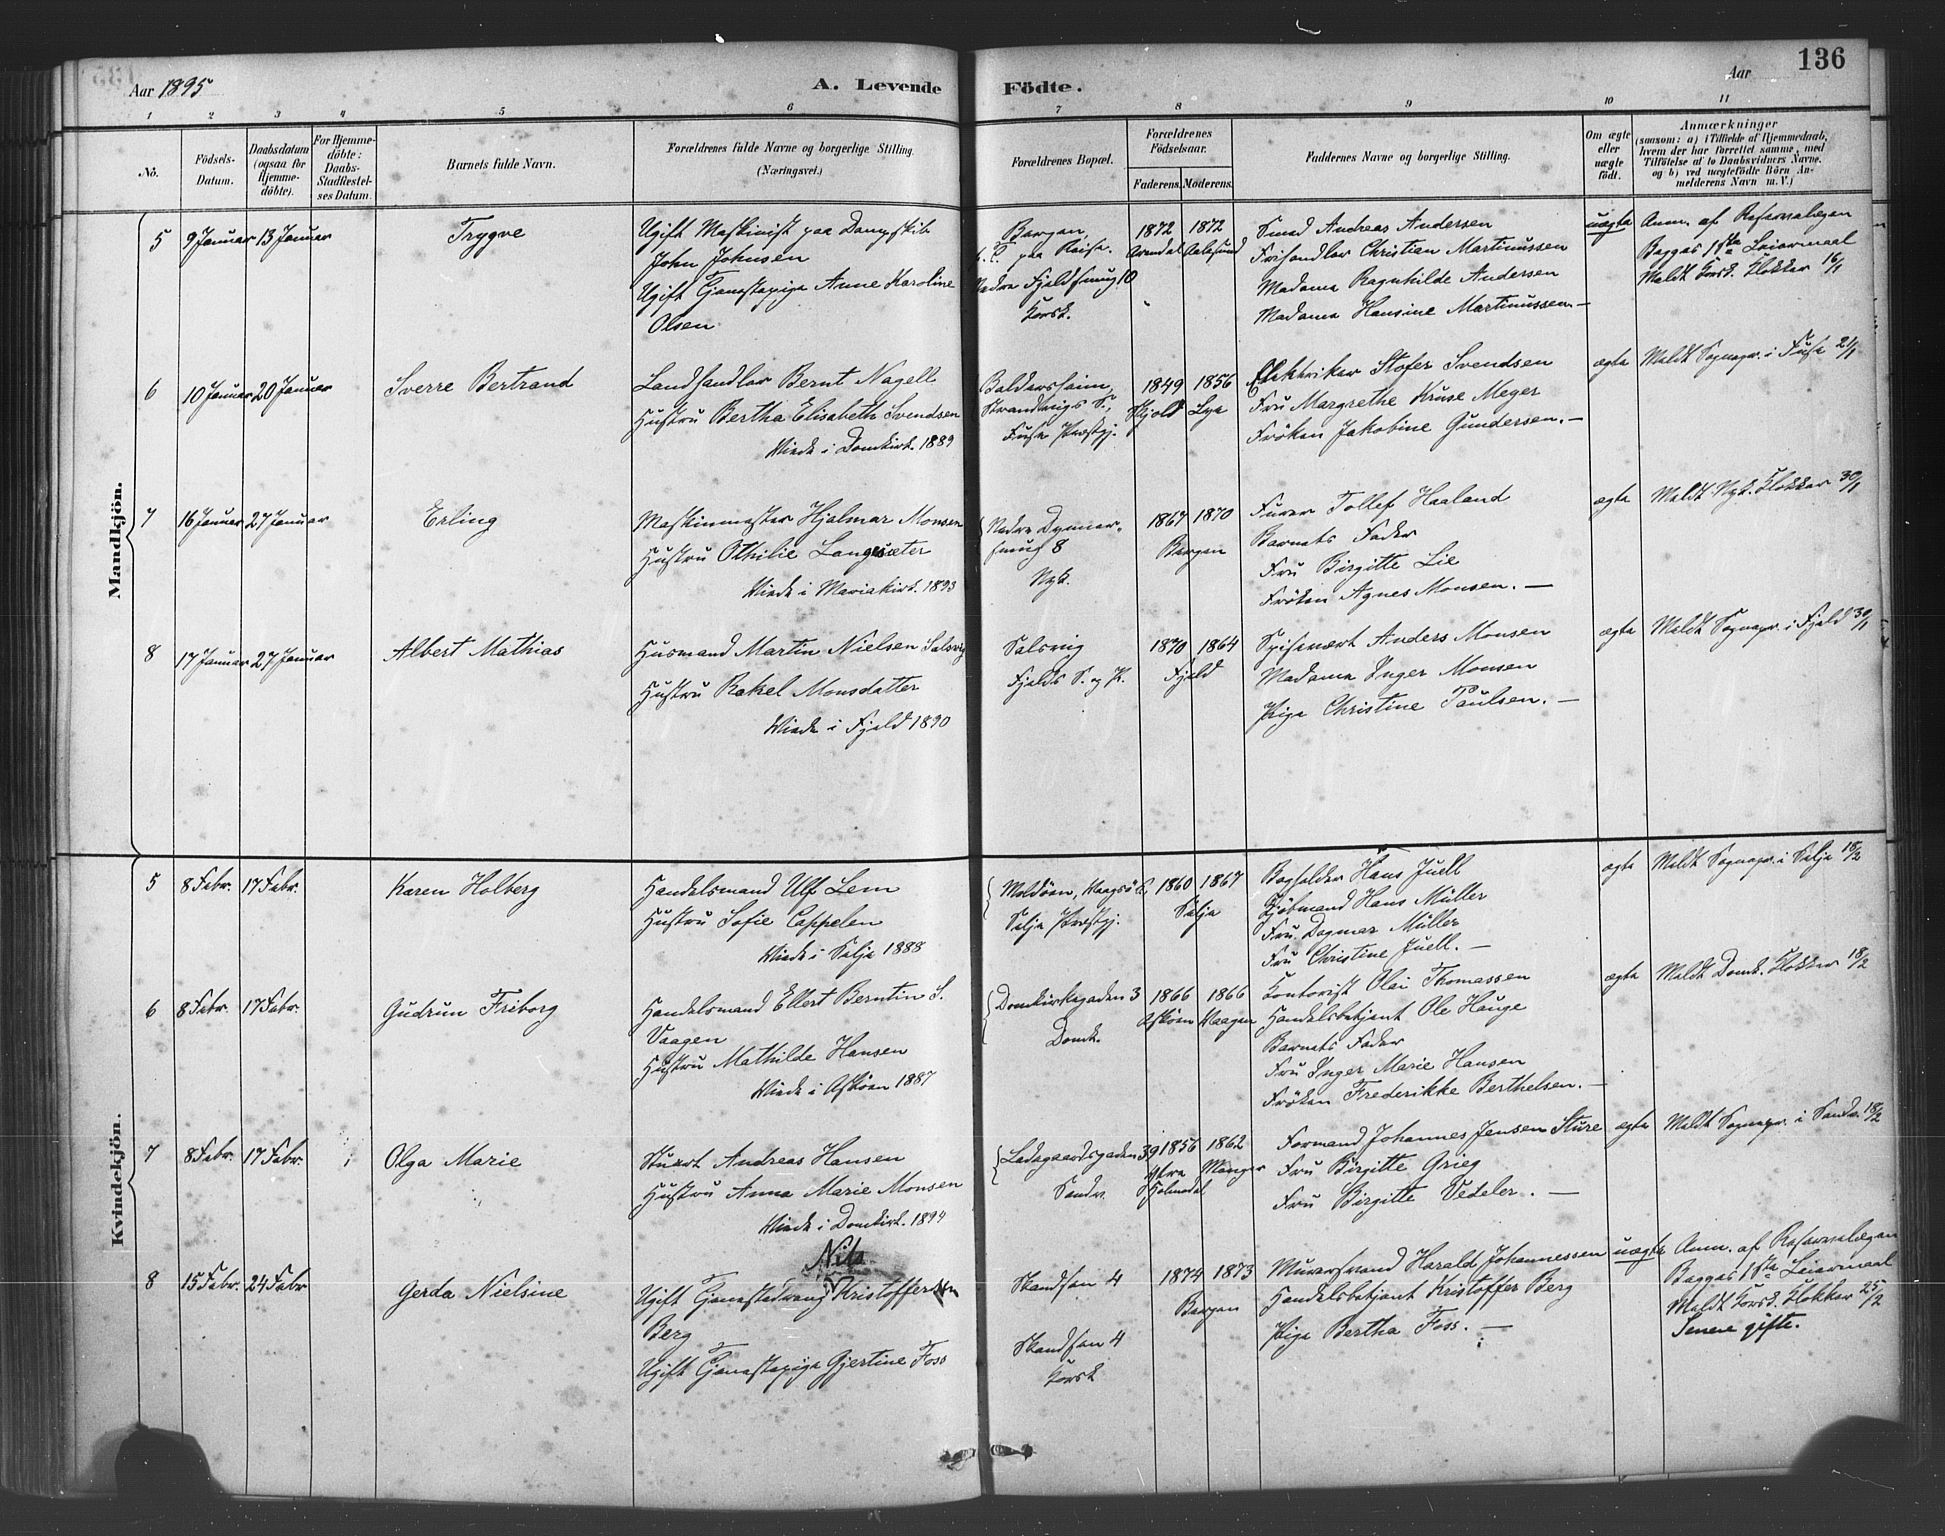 136
Aar 1895
A. Levende
Födte.
Aar
1 2 3 4 5 6 7 8 9 10 11
No.
Födsels-
Datum.
Daabsdatum
(ogsaa for
Hjemme-
döbte).
For Hjemme-
döbte:
Daabs-
Stadfæstel-
ses Datum.
Barnets fulde Navn.
Forældrenes fulde Navne og borgerlige Stilling.
(Næringsvei.)
Forældrenes Bopæl.
Forældrenes
Födselsaar.
Faderens. Moderens.
Faddernes Navne og borgerlige Stilling.
Om ægte
eller
uægte
födt.
Anmærkninger
(saasom: a) i Tilfælde af Hjemmedaab,
hvem der har forrettet samme, med
Tilföielse af to Daabsvidners Navne,
og b) ved uægtefödte Börn An-
melderens Navn m. V.)
Mandkjön.
5
9 Januar 13 Januar
Trygve
Ugift Maskinist paa Dampskib
John Johnsen
Ugift Tjenestepige Anne Karoline
Olsen
Bergen,
paa Reise.
Nedre Fjeldsmug 10
Korsk.
1872 1872
Arendal Aalesund
Smed Andreas Andersen
Frihandler Christian Martinussen
Madame Ragnhilde Andersen
Madame Hansine Martinussen. —
uægte
Anm. af Reserveløgen
Bagges 1ste Leiermaal
Meldt Korsk. Klokker 16/1
6
10 Januar 20 Januar
Sverre Bertrand
Landhandler Bernt Nagell
Hustru Bertha Elisabeth Svendsen
Viede i Domkirk. 1889
Baldersheim,
Strandvigs S.,
Fuse Præstgj.
1849 1856
Skjold Lye
Elektriker Stofer Svendsen
Fru Margrethe Kruse Meger
Fröken Jakobine Gundersen. —
ægte
Meldt Sognepr. i Fuse 21/1
7
16 Januar 27 Januar
Erling
Maskinmester Hjalmar Monsen
Hustru Othilie Langesæter
Viede i Mariakirk. 1893
Nedre Dynner-
smug 8
Nyk.
1867 1870
Bergen
Furer Tollef Haaland
Barnets Fader
Fru Birgitte Lie
Fröken Agnes Monsen. —
ægte
Meldt Nyk. Klokker 30/1
8
17 Januar 27 Januar
Albert Mathias
Husmand Martin Nielsen Solsvig
Hustru Rakel Monsdatter
Viede i Fjeld 1890
Solsvig
Fjelds S. og P.
1870 1864
Fjeld
Spisevært Anders Monsen
Madame Inger Monsen
Pige Christine Paulsen. —
ægte
Meldt Sognepr. i Fjeld 30/1
Kvindekjön.
5
8 Febr. 17 Febr.
Karen Holberg
Handelsmand Ulf Lem
Hustru Sofie Cappelen
Viede i Selje 1888
Moldöen, Vaagsö S.
Selje Præstgj.
1860 1867
Selje
Bogholder Hans Juell
Kjöbmand Hans Müller
Fru Dagmar Müller
Fru Christine Juell. —
ægte
Meldt Sognepr. i Selje 18/2
6
8 Febr. 17 Febr.
Gudrun Friborg
Handelsmand Ellert Berntin S.
Vaagen
Hustru Mathilde Hansen
Viede i Asköen 1887
Domkirkegaden 3
Domk.
1866 1866
Asköen Vaagen
Kontorist Olai Thomassen
Handelsbetjent Ole Hauge
Barnets Fader
Fru Inger Marie Hansen
Fröken Frederikke Berthelsen. —
ægte
Meldt Domk. Klokker 18/2
7
8 Febr. 17 Febr.
Olga Marie
Stuert Andreas Hansen
Hustru Anna Marie Monsen
Viede i Domkirk. 1894
Ladegaardsgaden 39
Sandv.
1856 1862
Övre Manger
Holmedal
Formand Johannes Jensen Sture
Fru Birgitte Grieg
Fru Birgitte Vedeler. —
ægte
Meldt Sognepr. i Sandv. 18/2
8
15 Febr. 24 Febr
Gerda Nielsine
Nils
Ugift Tjenestedreng Kristoffersen
Berg
Ugift Tjenestepige Gjertine Foss
Skandsen 4
Skandsen 4
Korsk
1874 1873
Bergen
Murersvend Harald Johannessen
Handelsbetjent Kristoffer Berg
Pige Bertha Foss. —
uægte
Anm. af Reserveløgen
Bagges 1ste Leiermaal
Meldt Korsk. Klokker 25/2
Senere gifte.